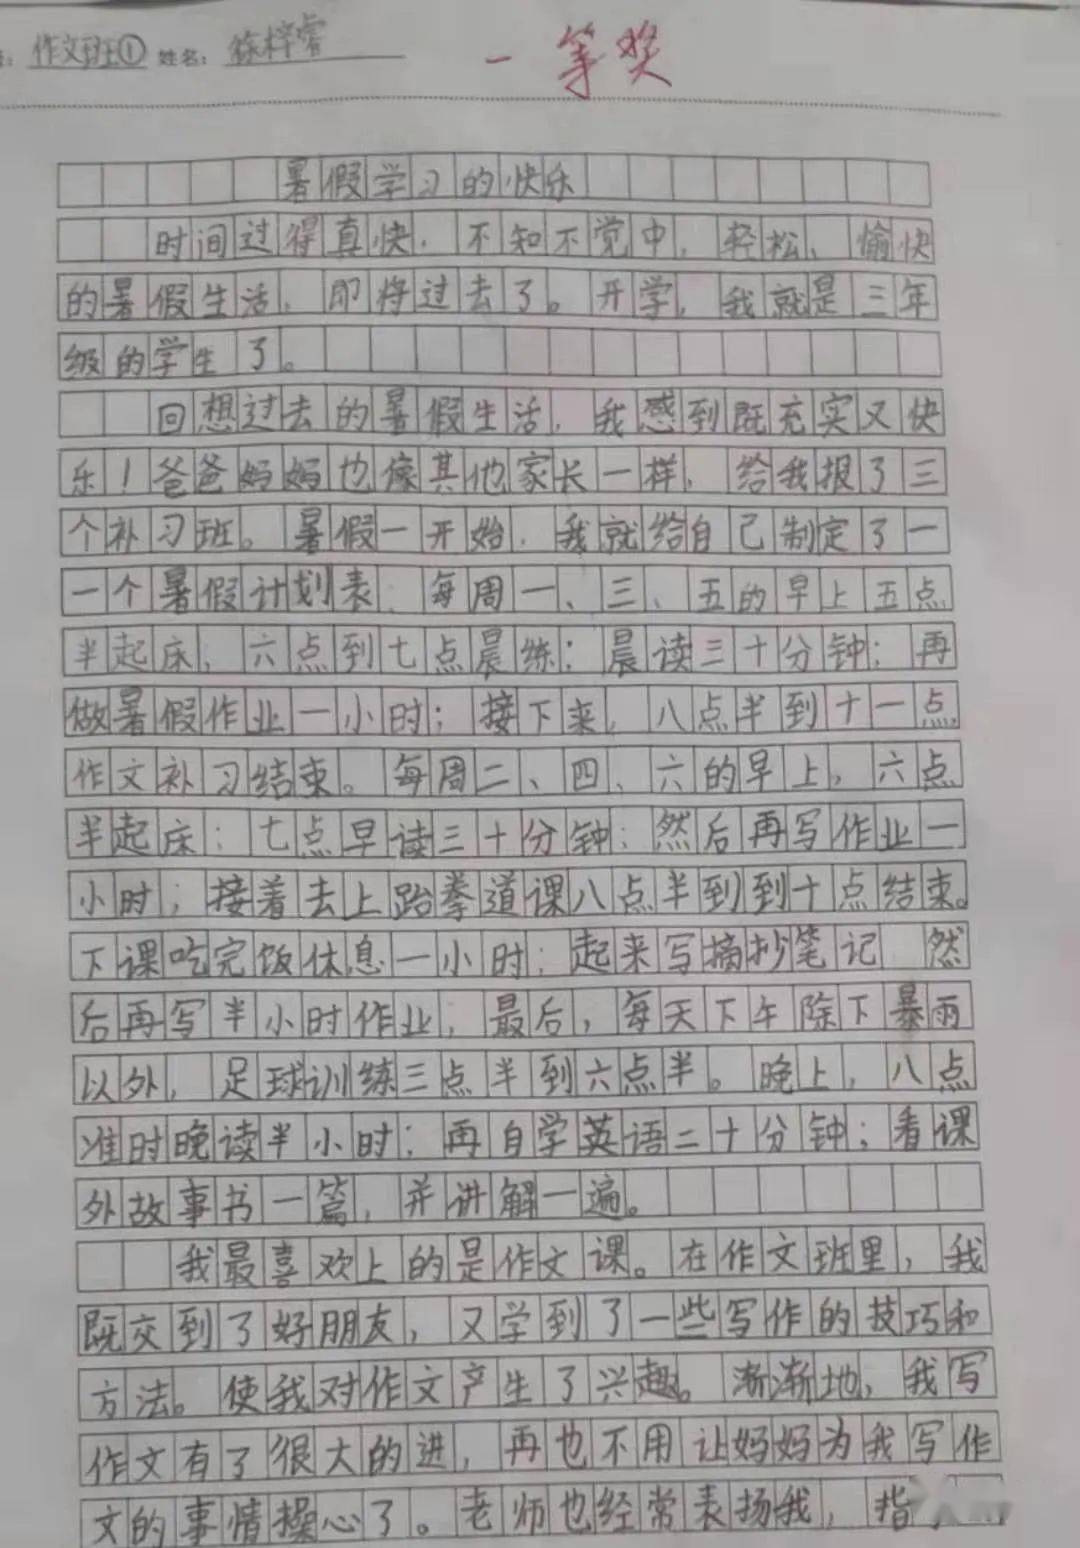 作文班① 姓名：梓睿
一等奖
暑假学习的快乐
时间过得真快，不知不觉中，轻松、愉快
的暑假生活，即将过去了。开学，我就是三年
级的学生了。
回想过去的暑假生活，我感到既充实又快
乐！爸爸妈妈也像其他家长一样，给我报了三
个补习班。暑假一开始，我就给自己制定了一
一个暑假计划表：每周一、三、五的早上五点
半起床，六点到七点晨练；晨读三十分钟；再
做暑假作业一小时；接下来，八点半到十一点
作文补习结束。每周二、四、六的早上，六点
半起床；七点早读三十分钟；然后再写作业一
小时；接着去上跆拳道课八点半到到十点结束。
下课吃完饭休息一小时；起来写摘抄笔记 然
后再写半小时作业，最后，每天下午除下暴雨
以外，足球训练三点半到六点半。晚上，八点
准时晚读半小时；再自学英语二十分钟；看课
外故事书一篇，并讲解一遍。
我最喜欢上的是作文课。在作文班里，我
既交到了好朋友，又学到了一些写作的技巧和
方法。使我对作文产生了兴趣。渐渐地，我写
作文有了很大的进，再也不用让妈妈为我写作
文的事情操心了。老师也经常表扬我，指